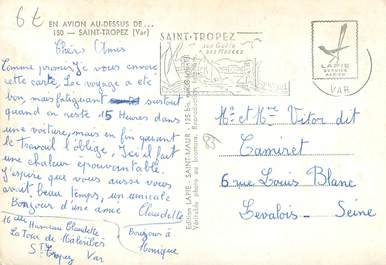 67
EN AVION AU-DESSUS DE...
150 — SAINT-TROPEZ (Var)
Chers Amis
Comme promis je vous envoie
cette carte. Le voyage a été
bon, mais fatiguant surtout
quand on reste 15 Heures dans
une voiture, mais en fin quand
le travail l'oblige. Ici il fait
une chaleur épouvantable.
J'espère que vous aussi vous
avez beau temps, un amicale
Bonjour d'une amie Claudette
Melle Harnieau Claudette
La Tour de
St Tropez Var
Bonjour à
Monique
Edition LAPIE - SAINT-MAUR
Véritable photo au bromure. Reproduction
SAINT-TROPEZ
son Golfe
ses Plages
LAPIE
SERVICE
AERIEN
VAR
Mr et Mme Victor dit
Camiret
6 rue Louis Blanc
Levalois - Seine